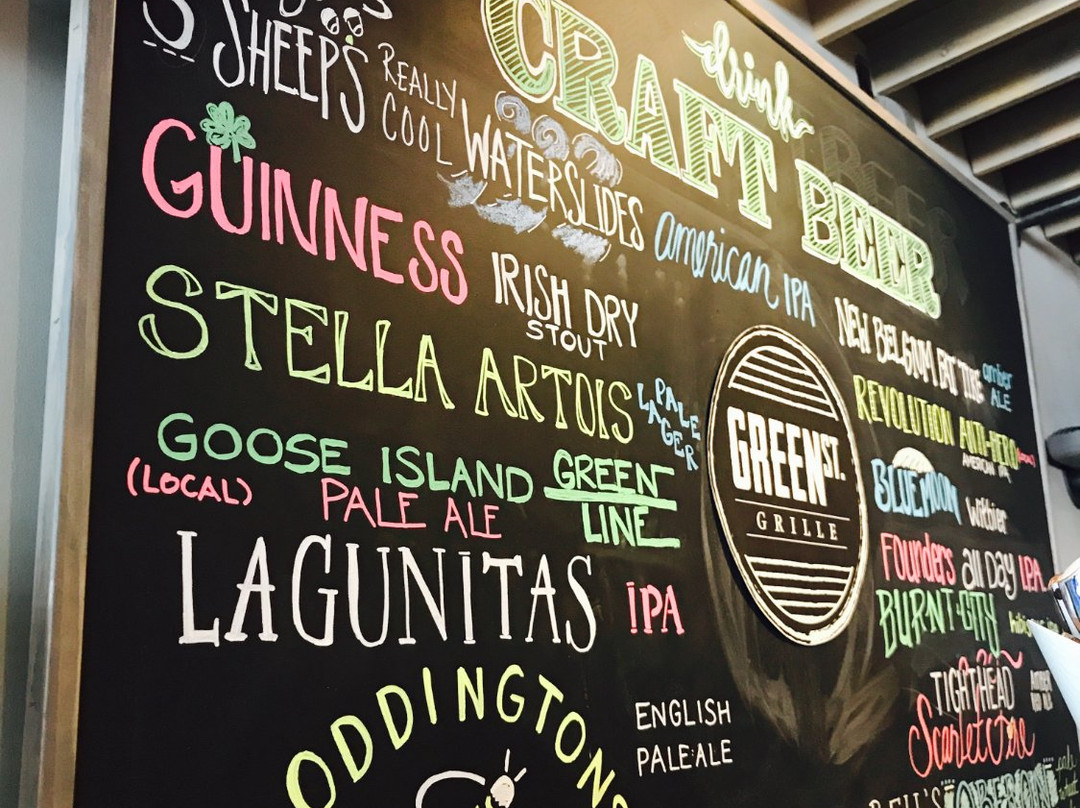 drink
CRAFT BEER
SHEEPS
REALLY
COOL WATERSLIDES
american IPA
GUINNESS
IRISH DRY
STOUT
STELLA ARTOIS
PALE
LAGER
GOOSE ISLAND GREEN
LINE
(LOCAL) PALE ALE
LAGUNITAS IPA
ODDINGTONS
ENGLISH
PALE ALE
GREEN ST.
GRILLE
NEW BELGIUM FAT TIRE amber
ALE
REVOLUTION ANTI-HERO (LOCAL)
AMERICAN IPA
BLUEMOON witbier
Founders all DAY I.P.A
BURNT CITY
TIGHTHEAD
Scarlet Fire
BELL'S OBERON pale
wheat